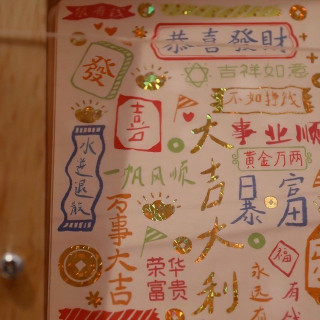 恭喜發財
發
吉祥如意
不如挣钱
喜
大吉大利
事业顺
水逆退散
一帆风顺
黄金万两
暴富
万事大吉
荣华富贵
福
永远